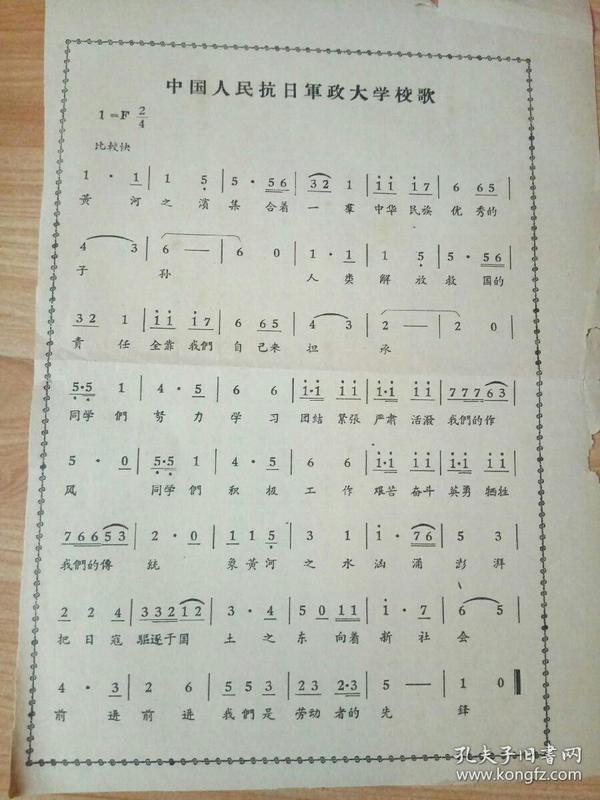 中国人民抗日軍政大学校歌
1=F 2/4
比較快
1 · 1 | 1 5 | 5 · 56 | 32 1 | 11 17 | 6 65 |
黄 河 之 濱 集 合着 一 羣 中华 民族 优 秀的
4 3 | 6 — | 6 0 | 1 · 1 | 1 5 | 5 · 56 |
子 孙 人 类 解 放 救 国的
32 1 | 11 17 | 6 65 | 4 3 | 2 — | 2 0 |
責 任 全靠 我們 自 己来 担 承
5·5 1 | 4 · 5 | 6 6 | 1·1 11 | 1·1 11 | 77763 |
同学 們 努 力 学 习 团結 緊張 严肃 活潑 我們的作
5 · 0 | 5·5 1 | 4 · 5 | 6 6 | 1·1 11 | 1·1 11 |
风 同学 們 积 极 工 作 艰苦 奋斗 英勇 牺牲
76653 | 2 · 0 | 115 | 3 1 | 1 · 76 | 5 3 |
我們的傳 統 象黄河 之 水 汹 涌 澎 湃
2 2 4 | 33212 | 3 · 4 | 5 0 11 | 1 · 7 | 6 5 |
把 日 寇 驅逐于国 土 之 东 向着 新 社 会
4 · 3 | 2 6 | 5 5 3 | 23 2·3 | 5 — | 1 0
前 进 前 进 我們是 劳动 者的 先 鋒
孔夫子旧書网
www.kongfz.com